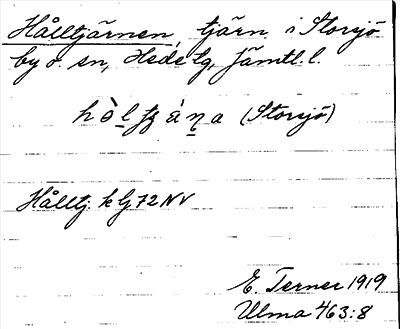 Hålltjärnen, tjärn i Storsjö
by o. sn, Hede tg, Jämtl. l.
(Storsjö)
Hålltj. k bj 72 NV
E. Terner 1919
Ulma 463:8